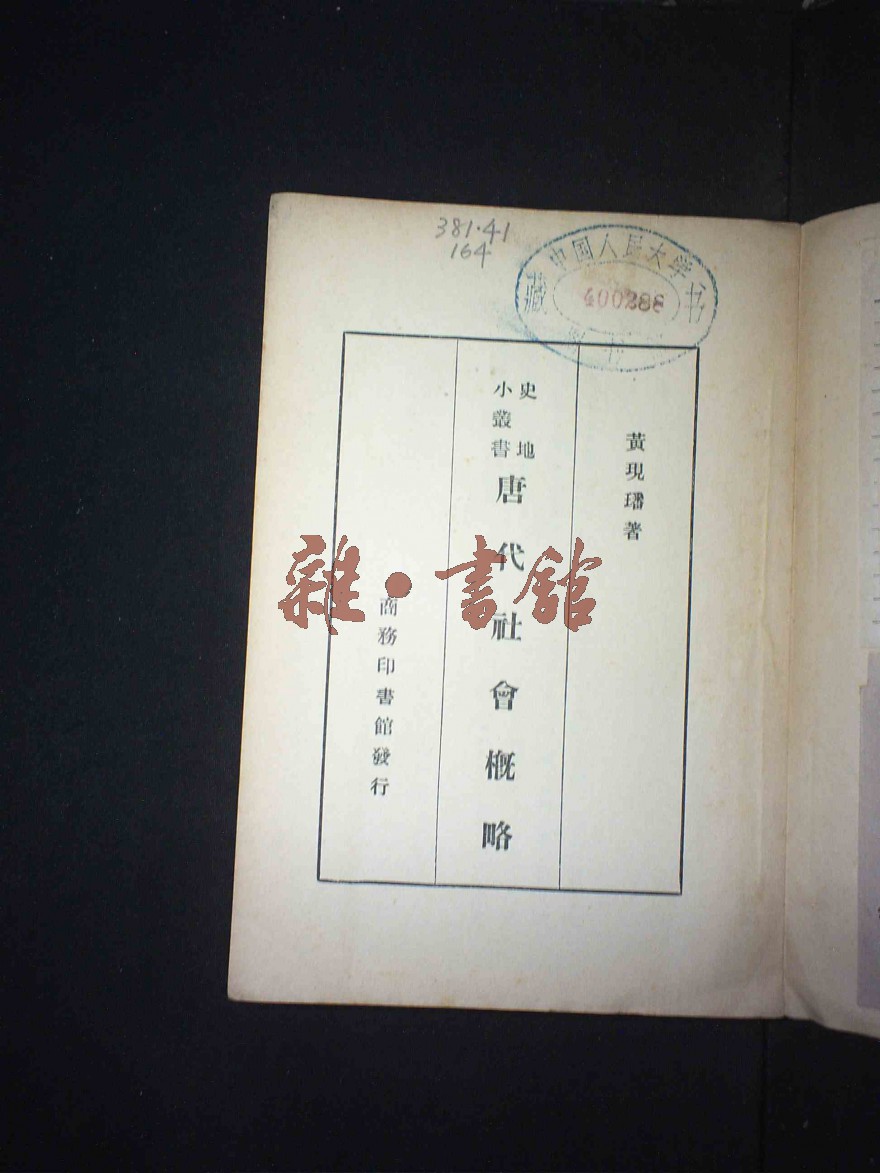 381.41
164
中国人民大学
藏 书
400286
黃現璠著
史地
小叢書
唐代社會概略
商務印書館發行
雜·書館